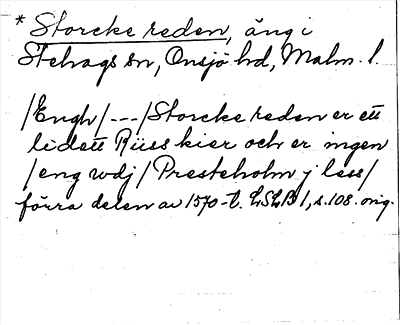 * Storcke reden, äng i
Stehags sn, Onsjö hd, Malm. l.
/Engh/---/Storcke reden er ett
lidett Riiss kier och er ingen
/eng wdj/Presteholm j less/
förra delen av 1570-t. LSLB 1, s. 108. orig.